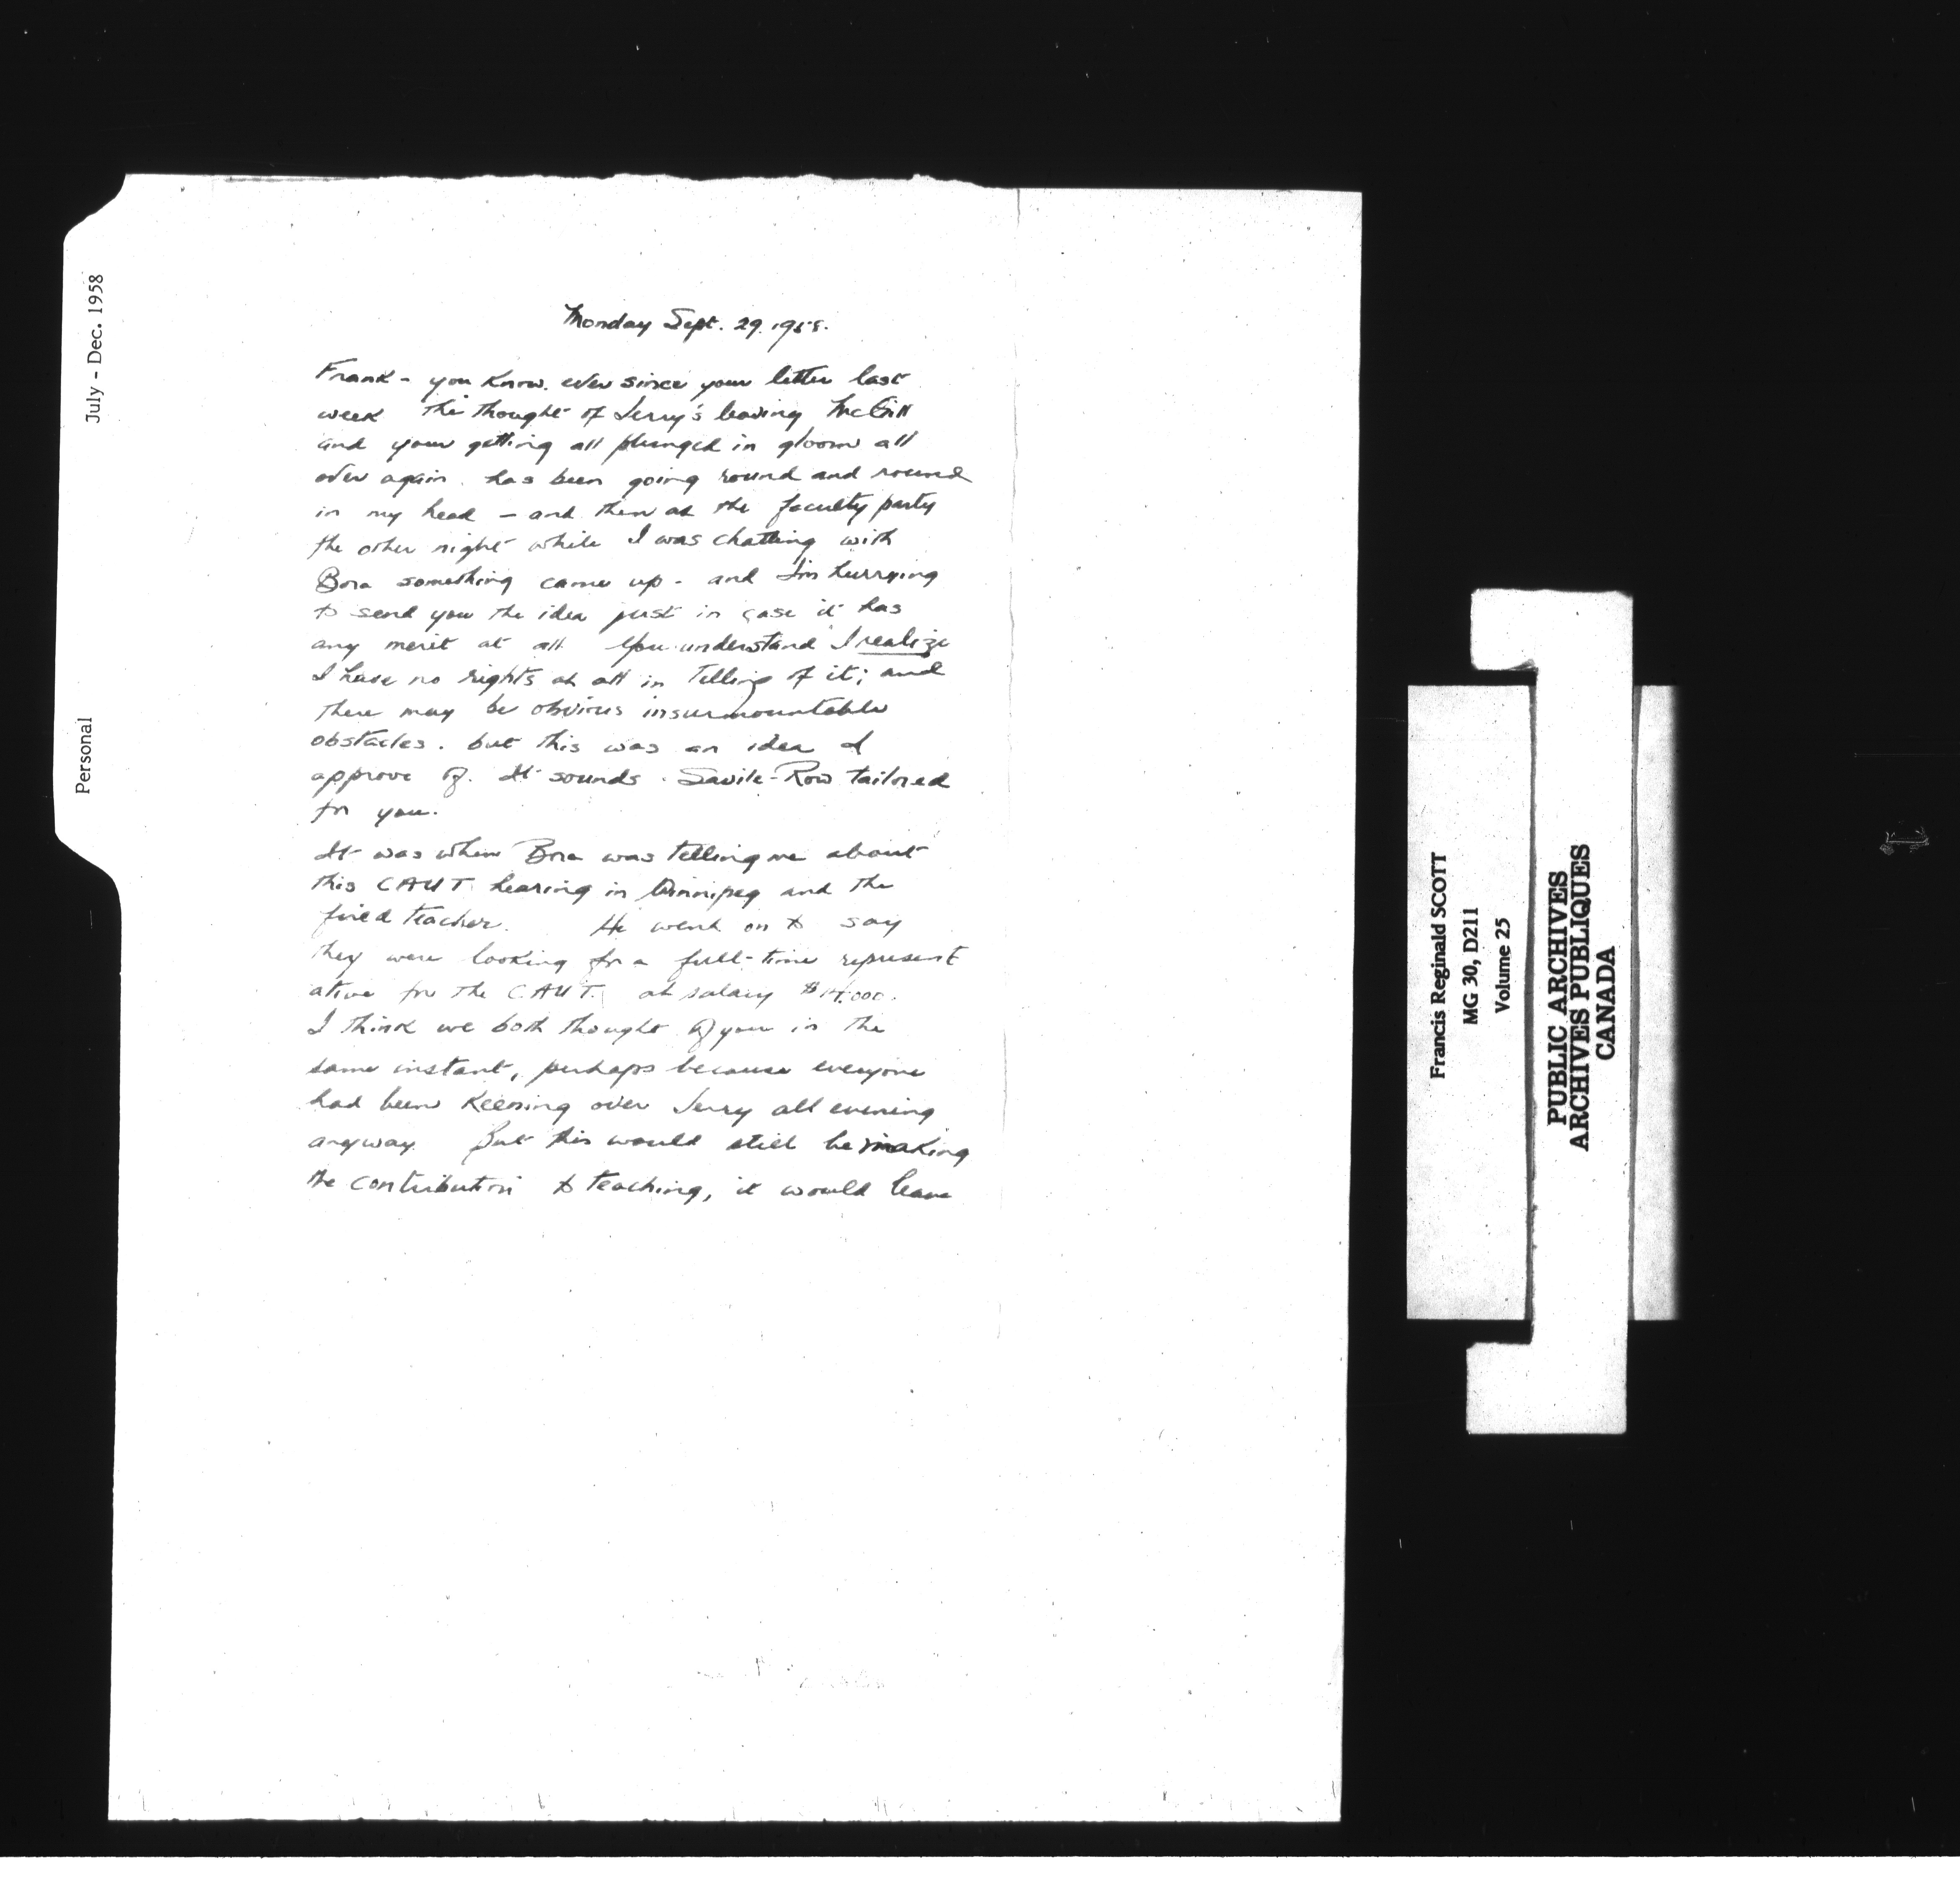 July - Dec. 1958
Personal
Monday Sept. 29. 1958.
Frank - you know. ever since your letter last
week the thought of Jerry's leaving McGill
and your getting all plunged in gloom all
over again. has been going round and round
in my head - and then at the faculty party
the other night while I was chatting with
Bora something came up - and I'm hurrying
to send you the idea just in case it has
any merit at all. You understand I realize
I have no rights at all in telling of it; and
there may be obvious insurmountable
obstacles. but this was an idea I
approve of. It sounds Savile-Row tailored
for you.
It was when Bora was telling me about
this CAUT hearing in Winnipeg and the
fired teacher. He went on to say
they were looking for a full-time represent
ative for the C.A.U.T. at salary
I think we both thought of you in the
same instant, perhaps because everyone
had been keening over Jerry all evening
anyway. But this would still be making
the contribution to teaching, it would leave
Francis Reginald SCOTT
MG 30, D211
Volume 25
PUBLIC ARCHIVES
ARCHIVES PUBLIQUES
CANADA